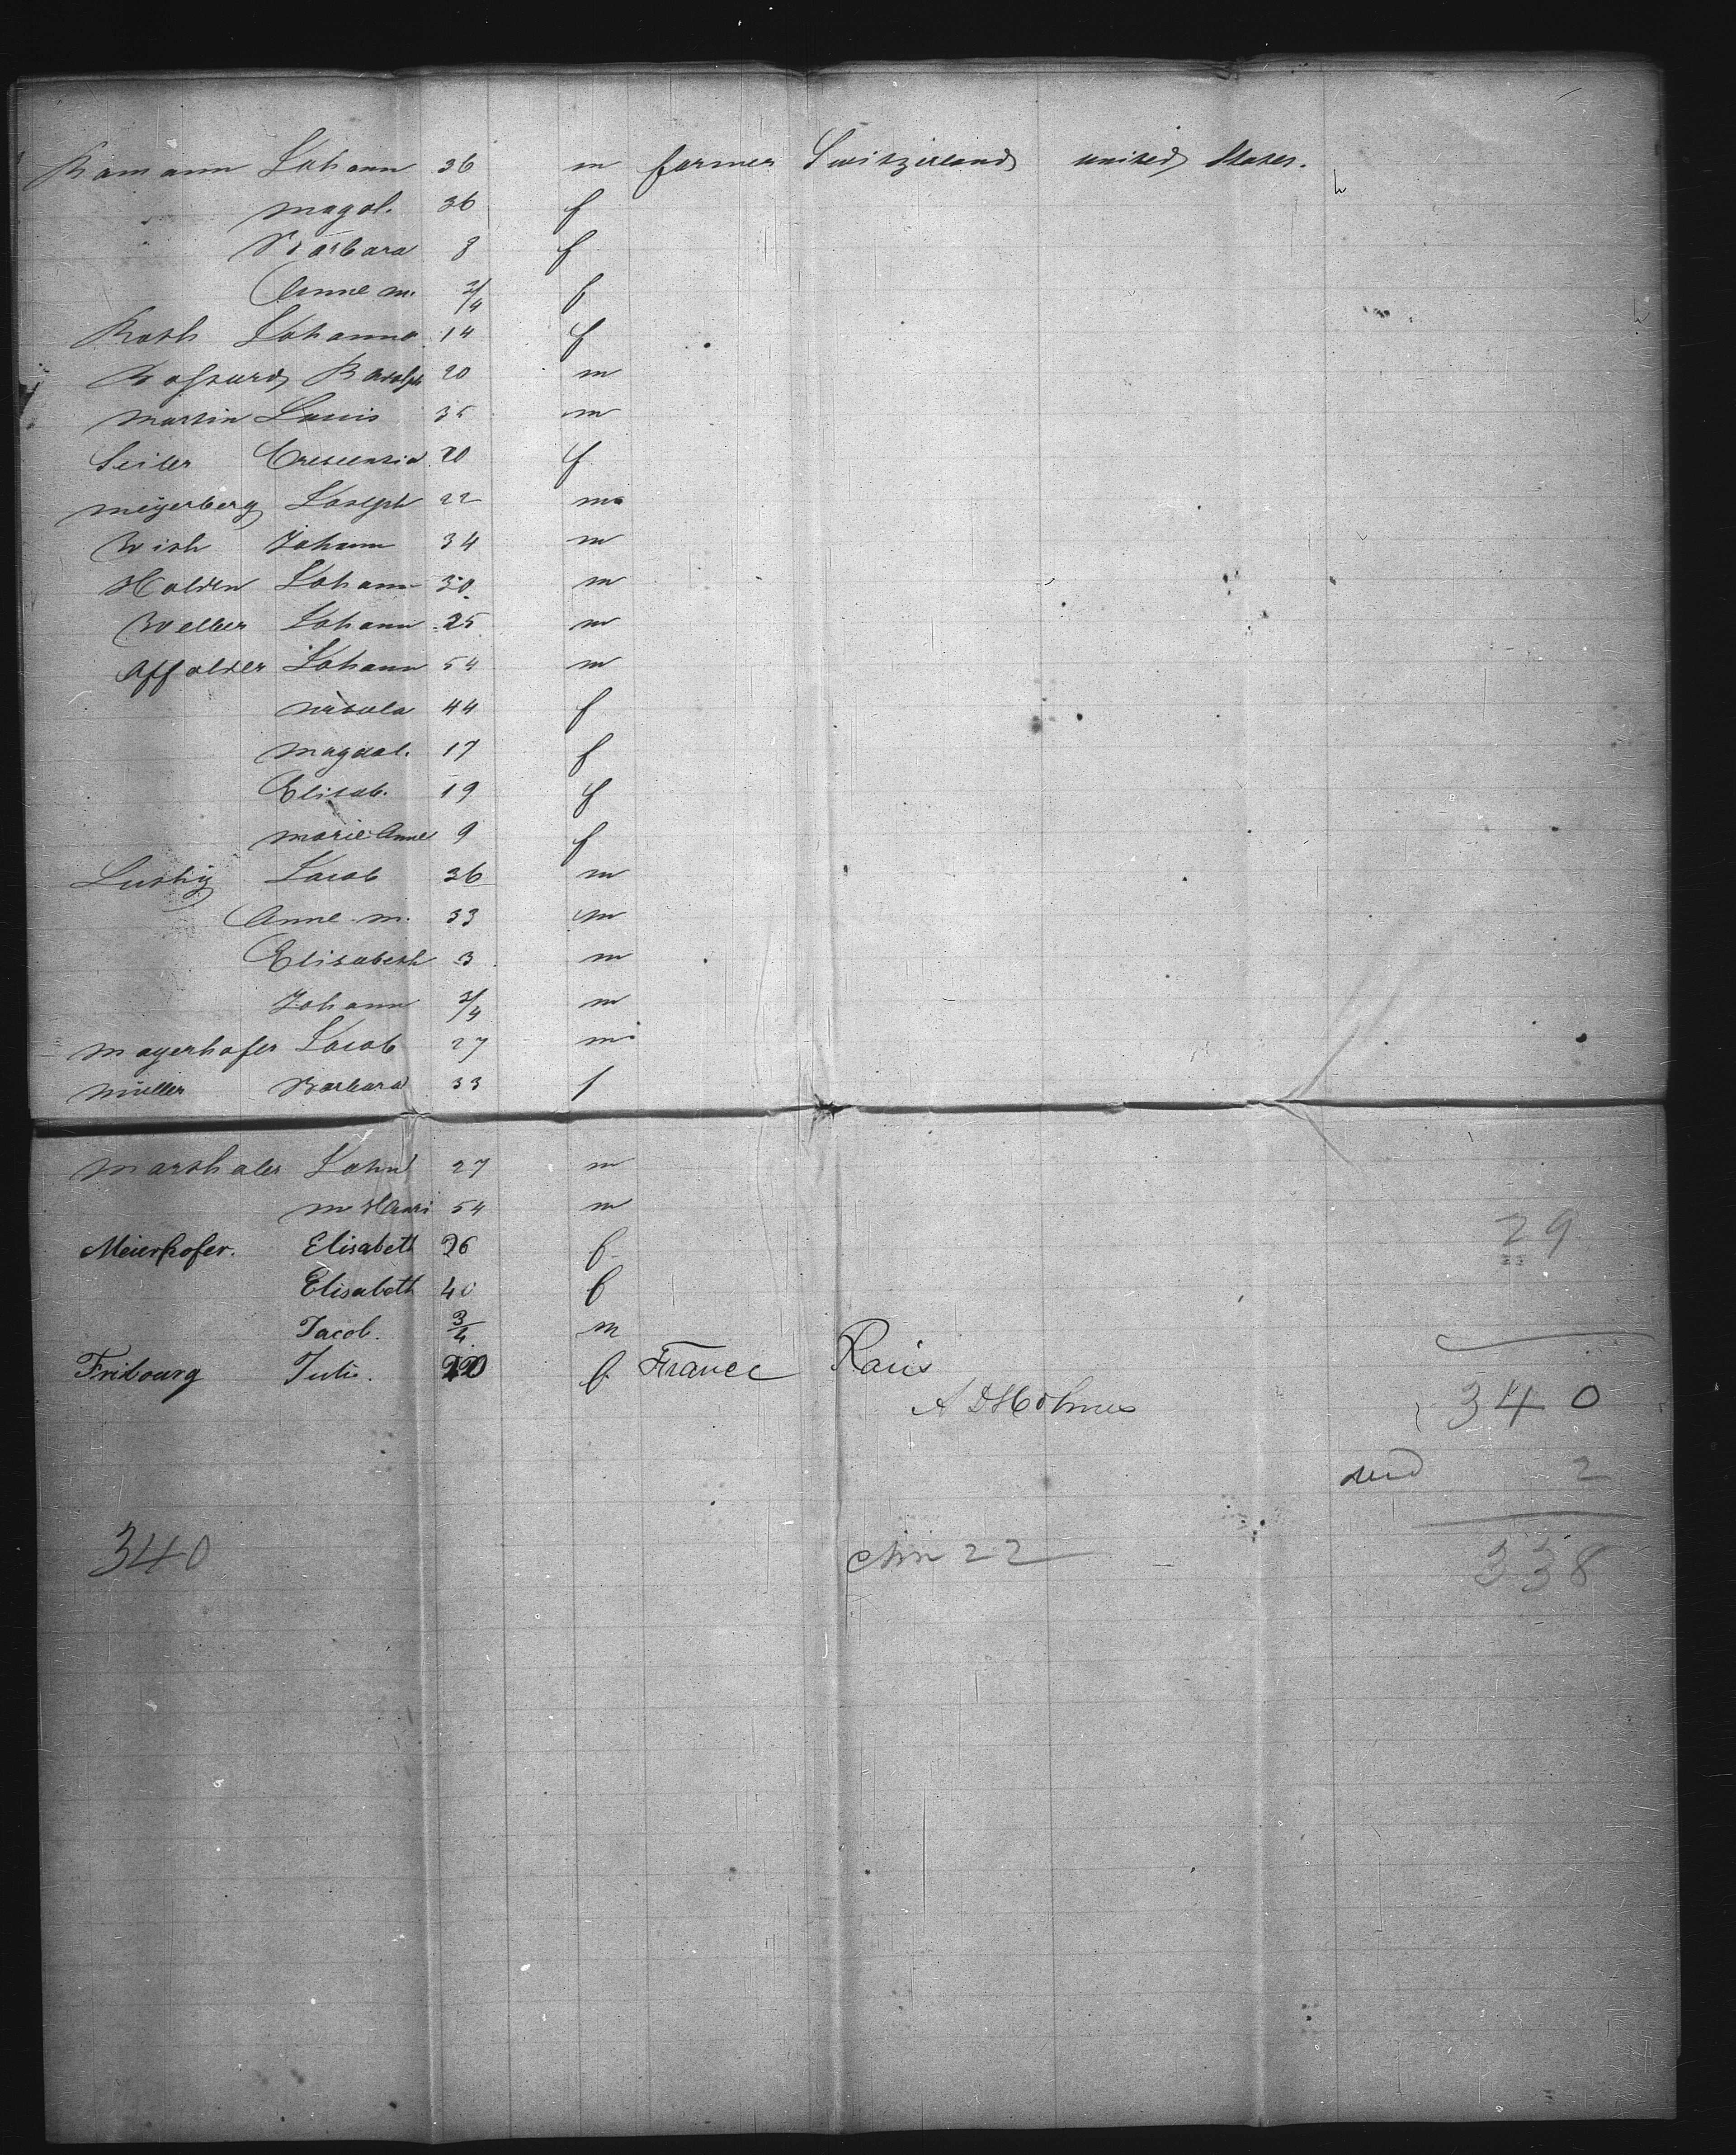 Ramann Johann 36 m farmer Switzerland united States.
Magol. 36 f
Barbara 8 f
Anne m. 3/4 f
Roth Johanna 14 f
Bossard Rudolph 20 m
Martin Louis 35 m
Seiler Crescensia 20 f
Meyerberg Joseph 22 m
Wish Johann 34 m
Holden Johann 30 m
Weller Johann 25 m
Affolder Johann 54 m
Ursula 44 f
Magdal. 17 f
Elisab. 19 f
Marie Anne 9 f
Lustig Jacob 36 m
Anne m. 33 m
Elisabeth 3 m
Johann 3/4 m
Mayerhofer Jacob 27 m
Müller Barbara 33 f
Marthaler John 27 m
m 54 m
29
Meierhofer. Elisabeth 26 f
Elisabeth 40 f
Jacob. 3/4 m
Fribourg Julie. f. France
A D Holmes
340
2
340 22 338